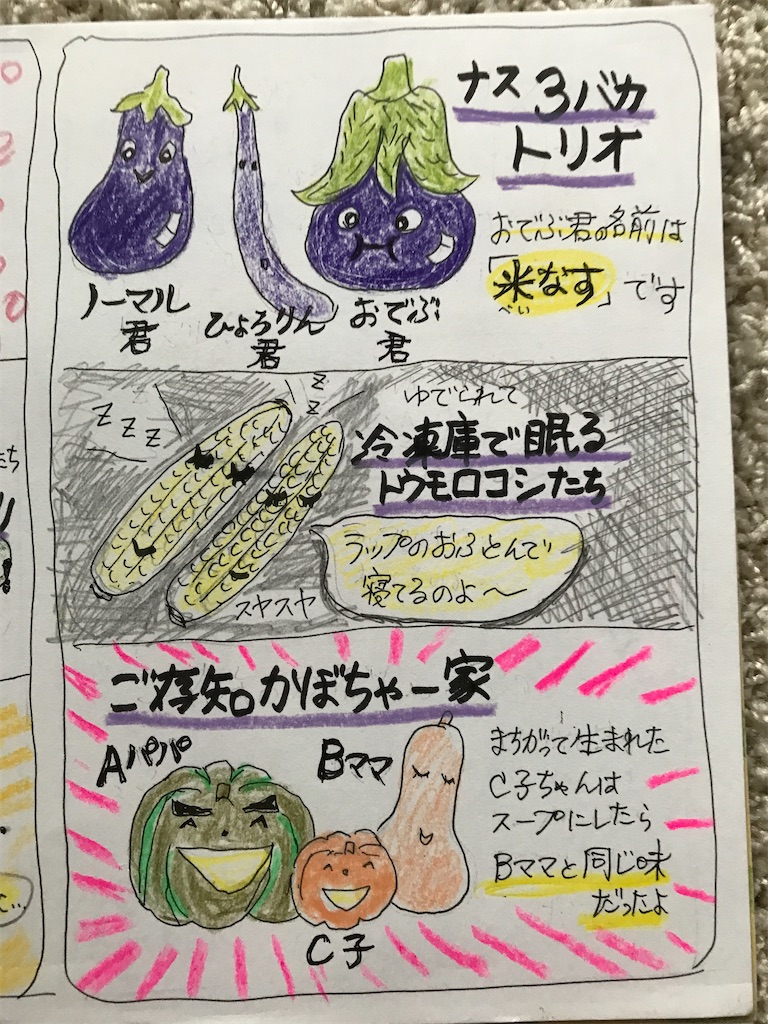 ナス3バカ
トリオ
おでぶ君の名前は
「米なす」です
べい
ノーマル
君
ひょろりん
君
おでぶ
君
ゆでられて
冷凍庫で眠る
トウモロコシたち
z z z
z
z
ラップのおふとんで
寝てるのよ〜
スヤスヤ
ご存知かぼちゃ一家
Aパパ
Bママ
C子
まちがって生まれた
C子ちゃんは
スープにしたら
Bママと同じ味
だったよ